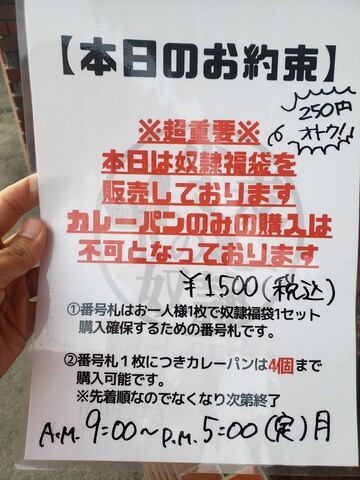 【本日のお約束】
250円
オトク!!
※超重要※
本日は奴隷福袋を
販売しております
カレーパンのみの購入は
不可となっております
¥1500(税込)
①番号札はお一人様1枚で奴隷福袋1セット
購入確保するための番号札です。
②番号札１枚につきカレーパンは4個まで
購入可能です。
※先着順なのでなくなり次第終了
A.M. 9:00～P.M. 5:00 (定)月